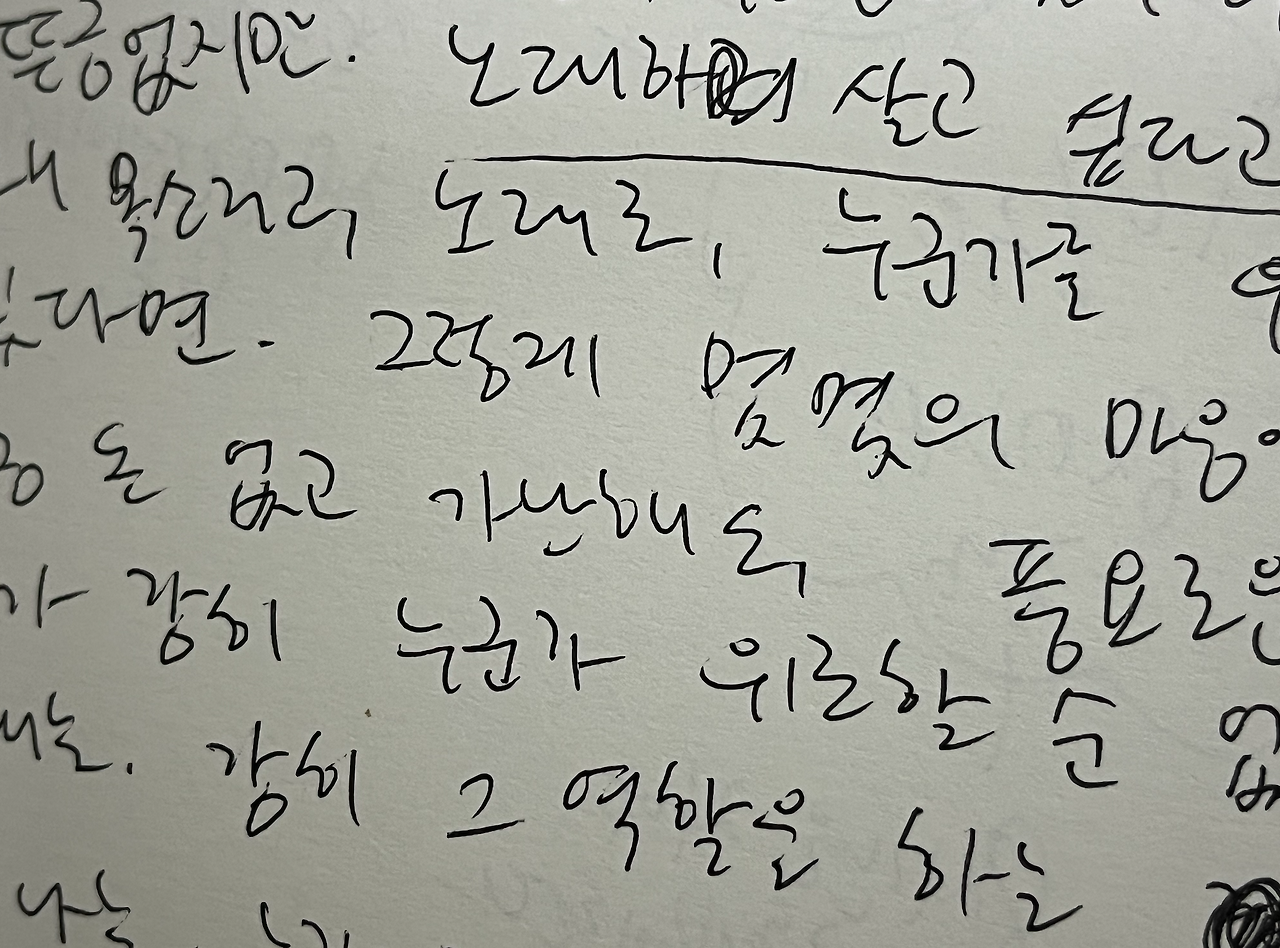 뜬금없지만. 노래하며 살고 싶다고
내 목소리로, 노래로, 누군가를
다면. 그렇게 몇 몇의 마음
돈 없고 가난해도, 풍요로운
가 감히 누군가 위로할 순 없
는. 감히 그 역할을 하는
나는